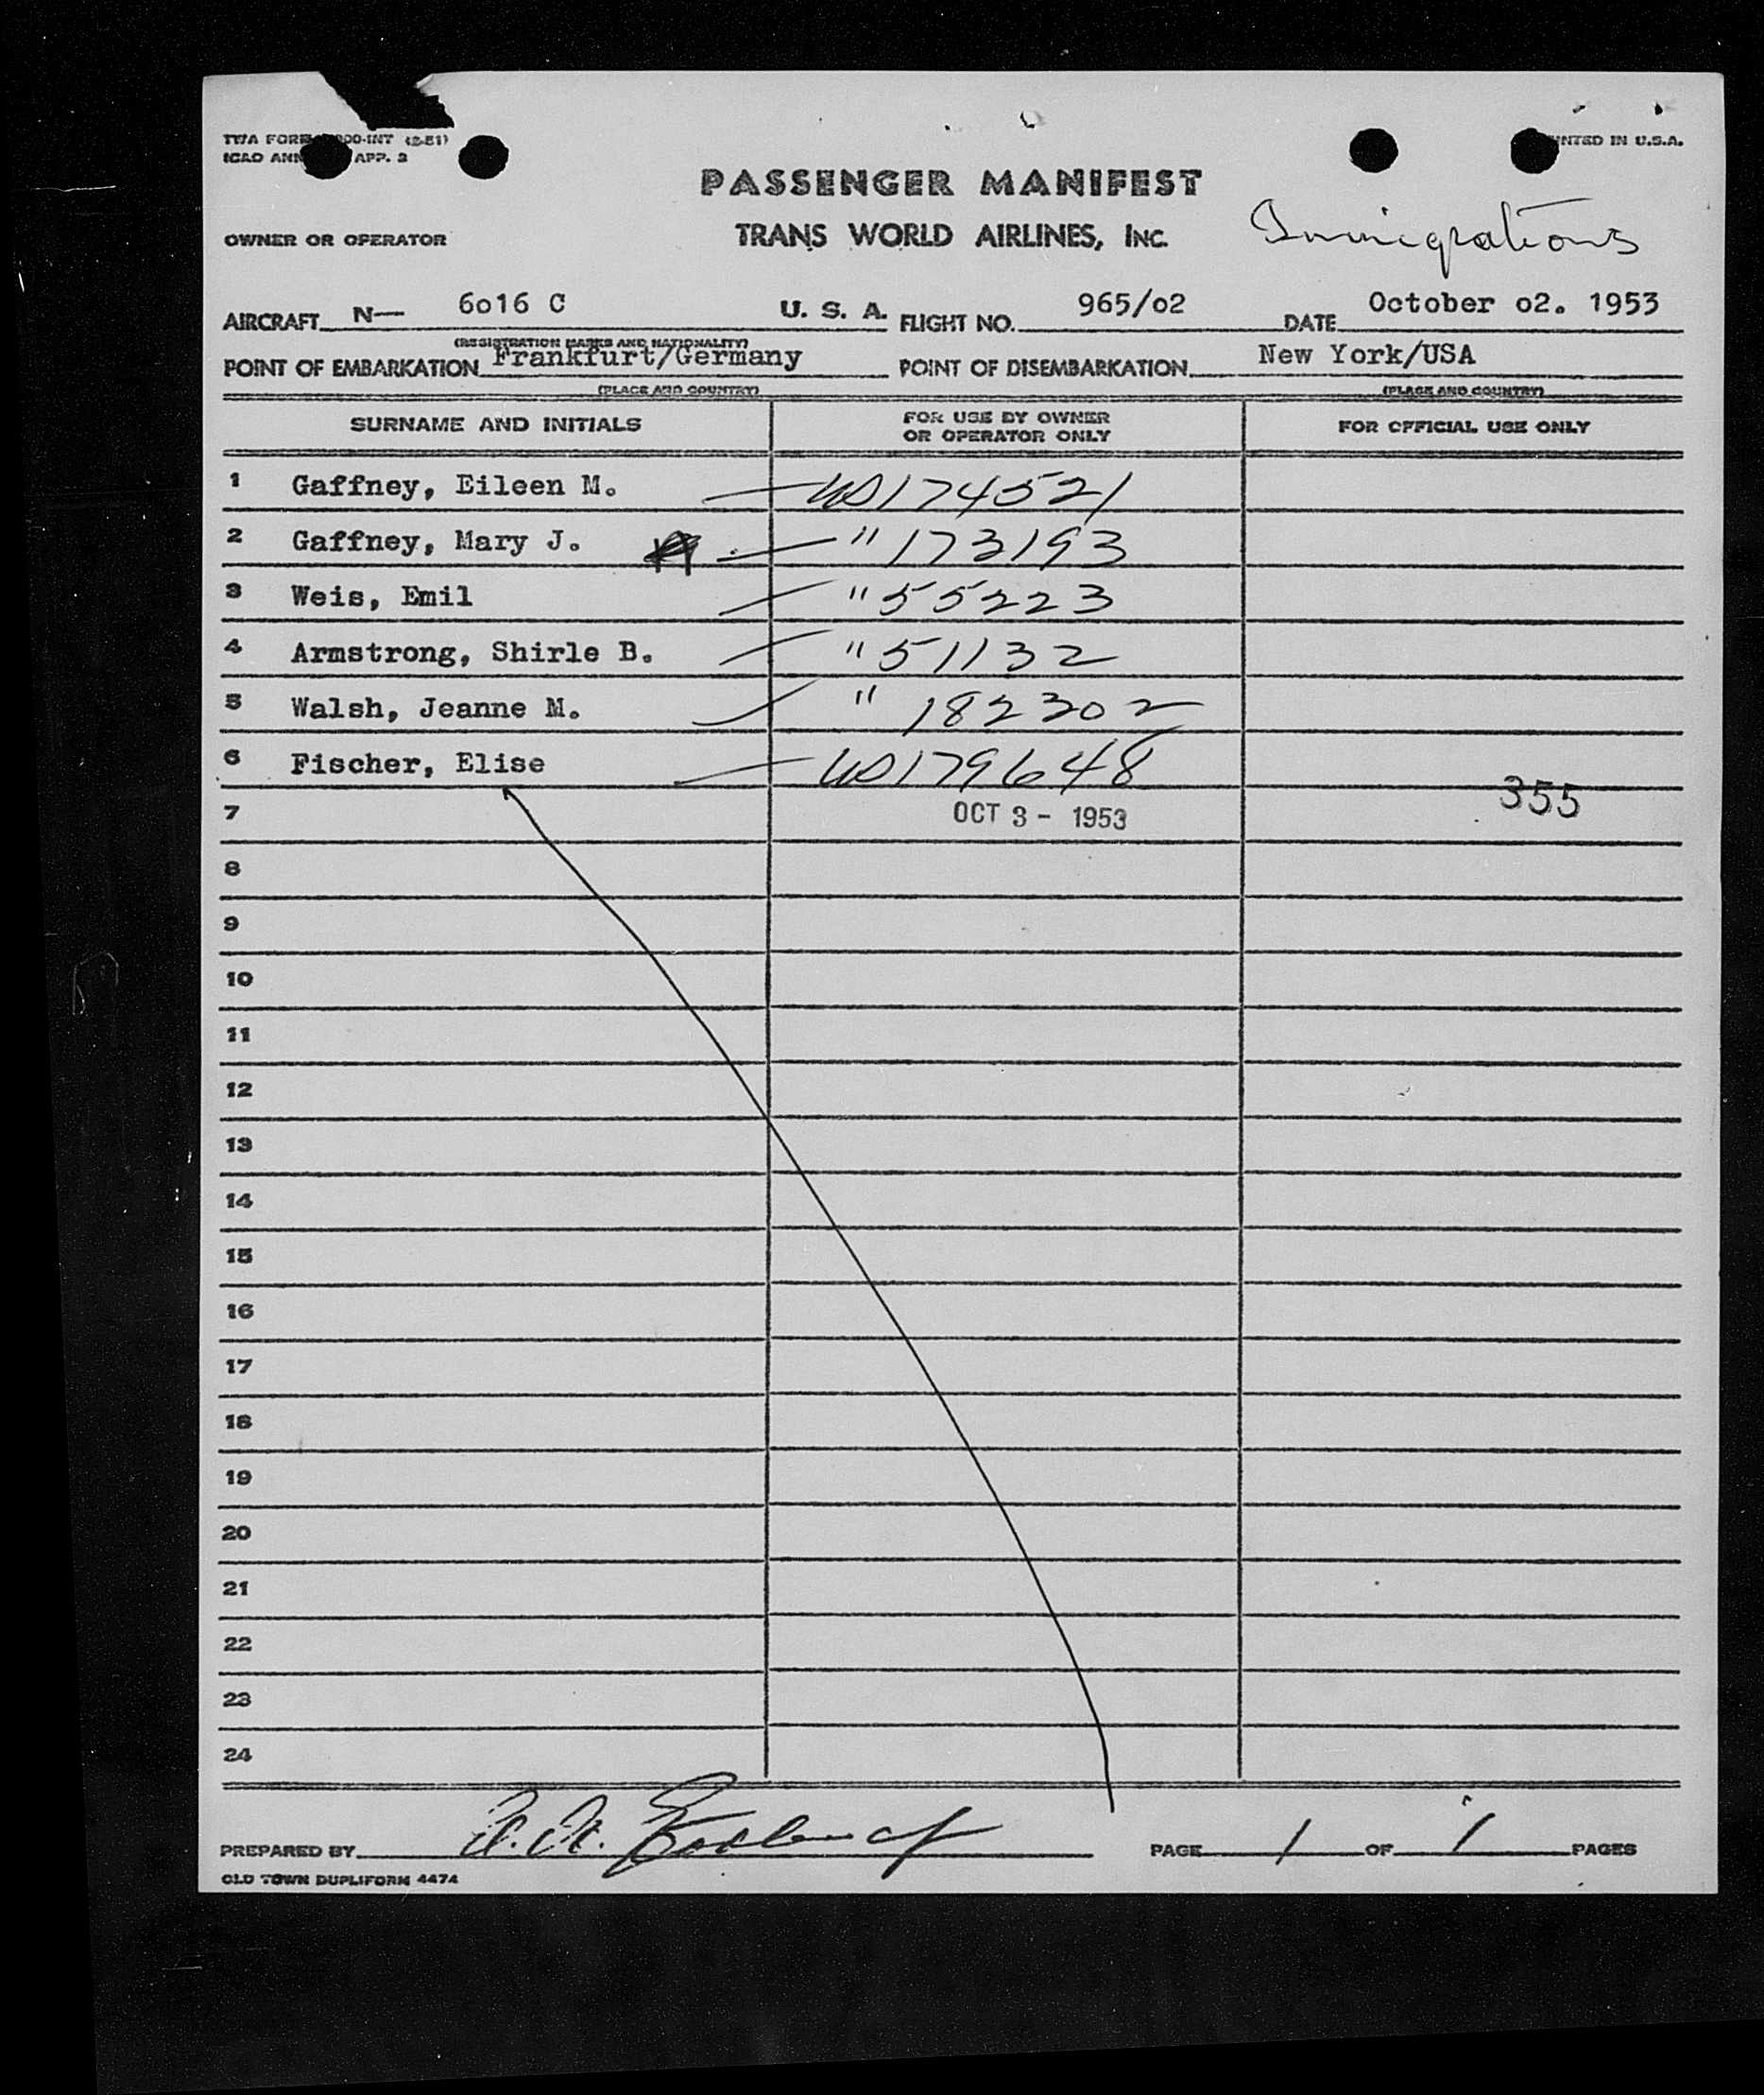 TWA FORM 00-INT (2-51)
ICAO ANN APP. 2
NTED IN U.S.A.
PASSENGER MANIFEST
OWNER OR OPERATOR TRANS WORLD AIRLINES, INC. Immigrations
AIRCRAFT N— 6o16 C U. S. A. FLIGHT NO. 965/o2 DATE October o2. 1953
(REGISTRATION MARKS AND NATIONALITY)
POINT OF EMBARKATION Frankfurt/Germany POINT OF DISEMBARKATION New York/USA
(PLACE AND COUNTRY) (PLACE AND COUNTRY)
SURNAME AND INITIALS FOR USE BY OWNER OR OPERATOR ONLY FOR OFFICIAL USE ONLY
1 Gaffney, Eileen M. US174521
2 Gaffney, Mary J. " 173193
3 Weis, Emil " 55223
4 Armstrong, Shirle B. " 51132
5 Walsh, Jeanne M. " 182302
6 Fischer, Elise US179648
7 OCT 3 - 1953 355
8
9
10
11
12
13
14
15
16
17
18
19
20
21
22
23
24
PREPARED BY PAGE 1 OF 1 PAGES
OLD TOWN DUPLIFORM 4474